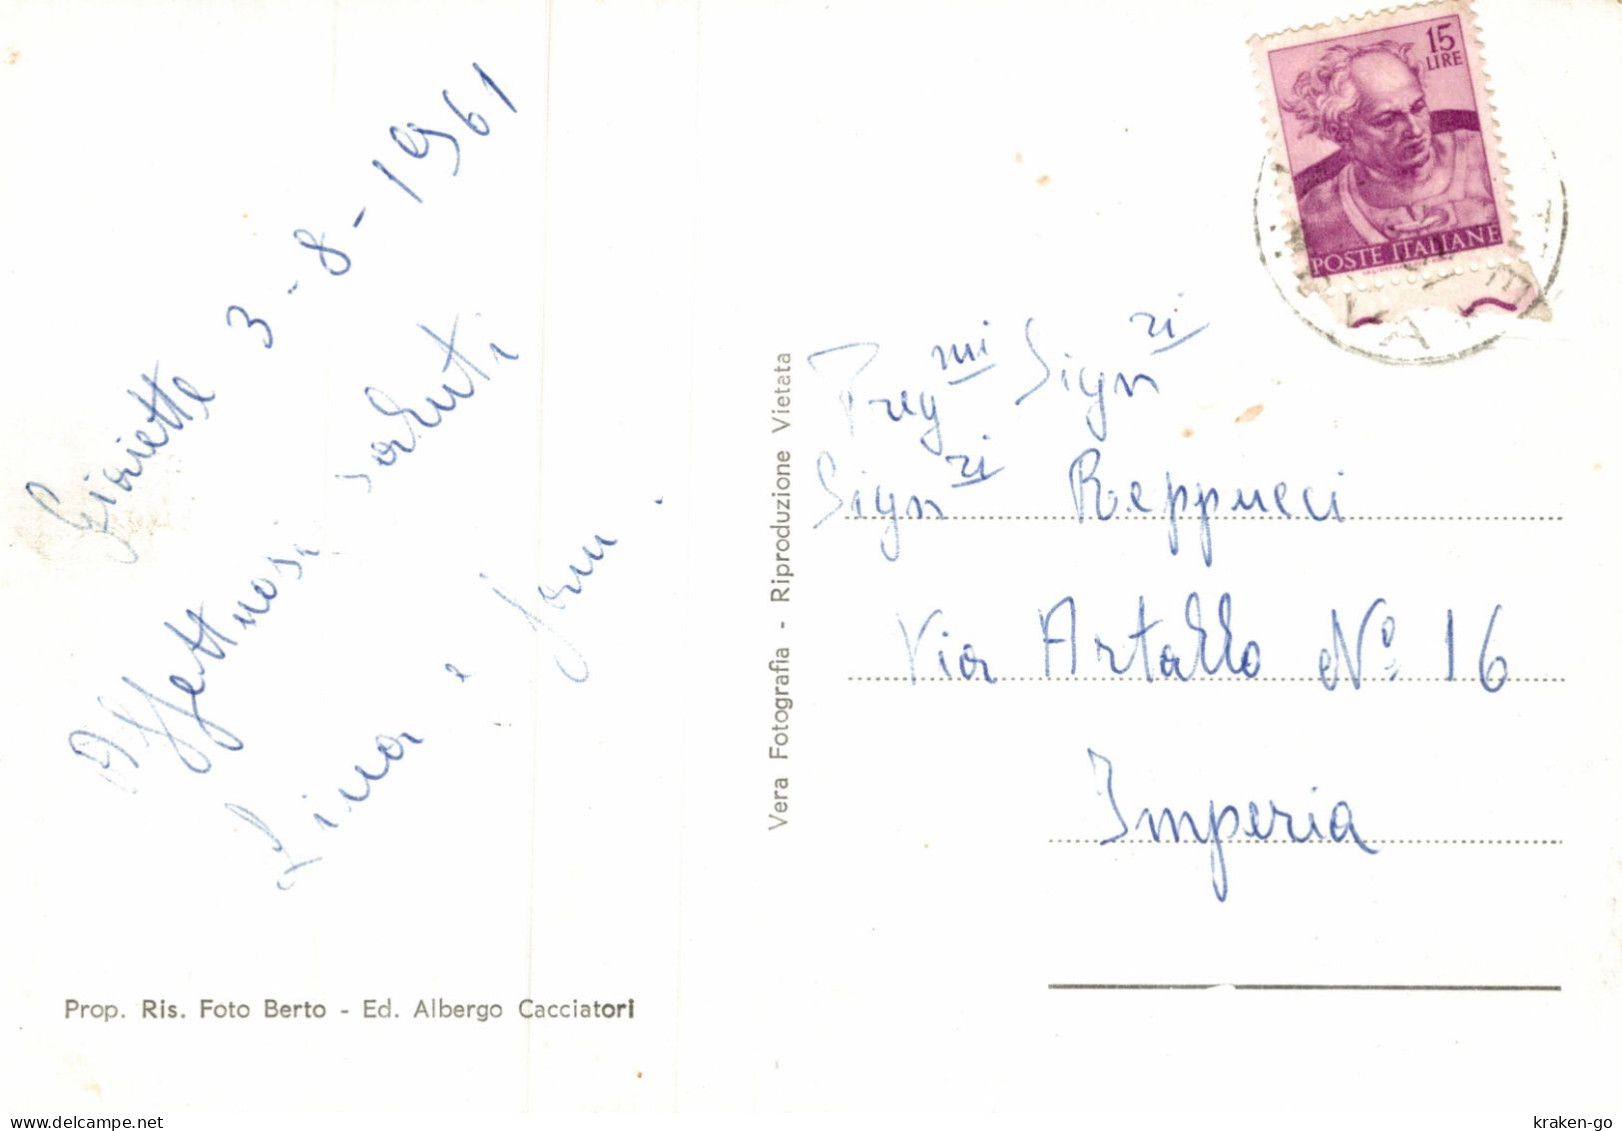 3-8-1961
Affettuosi saluti
Lina e
Prop. Ris. Foto Berto - Ed. Albergo Cacciatori
Vera Fotografia - Riproduzione Vietata
15
LIRE
POSTE ITALIANE
Preg mi Sign ri
Sign ri Reppucci
Via Artallo N° 16
Imperia
kraken-go